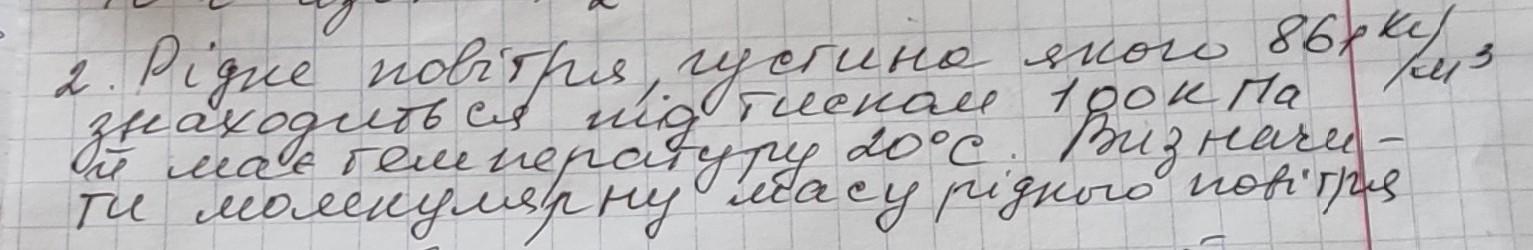 2. Рідке повітря, густина якого 861 кг/м³
знаходиться під тиском 100 кПа
й має температуру 20°С. Визначи-
ти молекулярну масу рідкого повітря